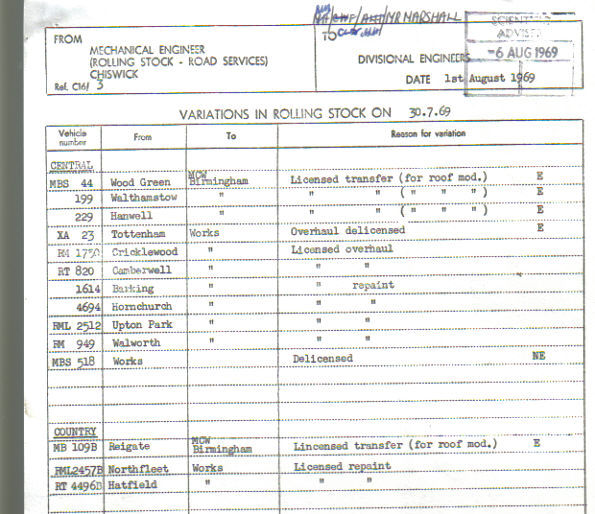 MR MARSHALL
SCIENTIFIC
ADVISER
-6 AUG 1969
FROM
MECHANICAL ENGINEER
(ROLLING STOCK - ROAD SERVICES)
CHISWICK
Ref. C16/ 3
TO
DIVISIONAL ENGINEERS
DATE 1st August 1969
VARIATIONS IN ROLLING STOCK ON 30.7.69
Vehicle number From To Reason for variation
CENTRAL
MBS 44 Wood Green MCW Birmingham Licensed transfer (for roof mod.) E
199 Walthamstow " " " ( " " " ) E
229 Hanwell " " " ( " " " ) E
XA 23 Tottenham Works Overhaul delicensed E
RM 1750 Cricklewood " Licensed overhaul
RT 820 Camberwell " " "
1614 Barking " " repaint
4694 Hornchurch " " "
RML 2512 Upton Park " " "
RM 949 Walworth " " "
MBS 518 Works Delicensed NE
COUNTRY
MB 109B Reigate MCW Birmingham Lincensed transfer (for roof mod.) E
RML2457B Northfleet Works Licensed repaint
RT 4496B Hatfield " " "